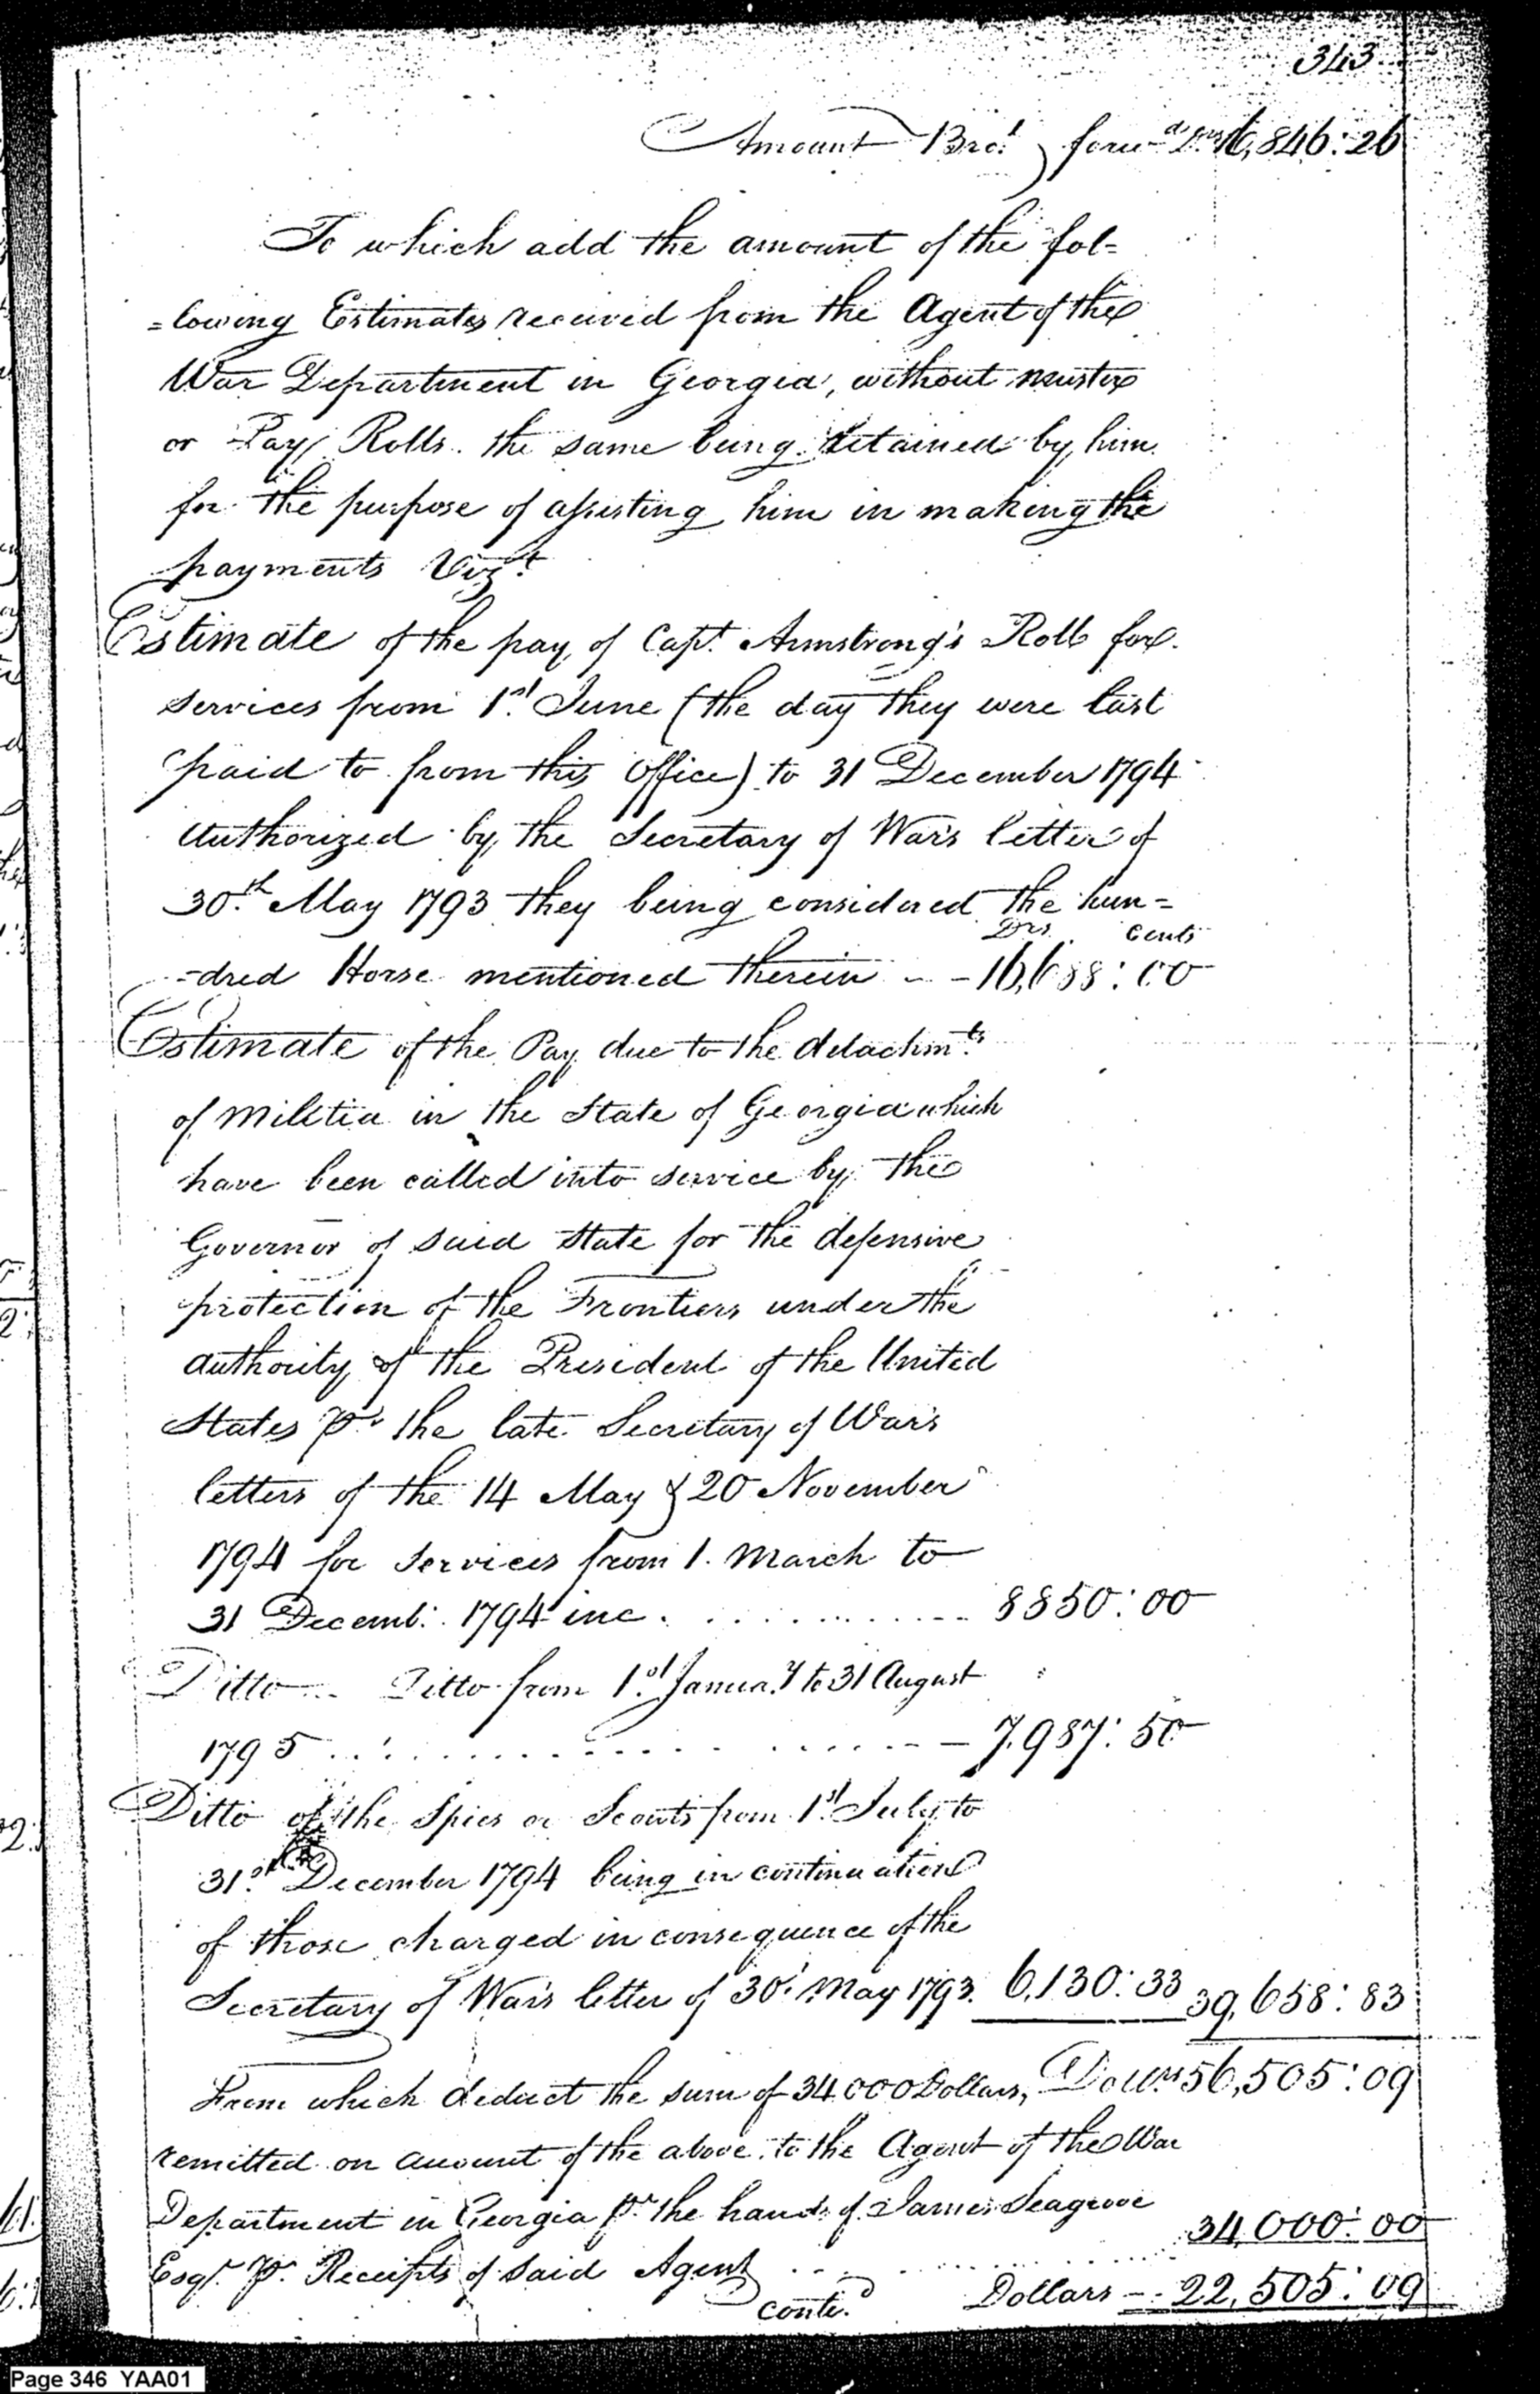 343
Amount Bro.t forw.d Drs 16,846:26
To which add the amount of the fol=
=lowing Estimates received from the Agent of the
War Department in Georgia, without muster
or Pay Rolls. the same being detained by him
for the purpose of assisting him in making the
payments Viz.t
Estimate of the pay of Capt. Armstrong's Roll for
services from 1st June (the day they were last
paid to from this Office) to 31 December 1794
Authorized by the Secretary of War's letter of
30.th May 1793 they being considered the hun=
Drs. Cents
=dred Horse mentioned therein - - 16,688:00
Estimate of the Pay due to the detachm.ts
of Militia in the State of Georgia which
have been called into service by the
Governor of said State for the defensive
protection of the Frontiers under the
authority of the President of the United
States pr. the late Secretary of War's
letters of the 14 May & 20 November
1794 for Services from 1. March to
31 Decemb: 1794 inc. . . . . . . . . . 8850:00
Ditto Ditto from 1.st Januar.y to 31 August
1795 . . . . . . . . . . . . . . . . 7,987:50
Ditto of the Spies or Scouts from 1.st July to
31.st December 1794 being in continuation
of those charged in consequence of the
Secretary of War's letter of 30.' May 1793. 6,130:33 39,658:83
From which deduct the sum of 34000 Dollars, Dollrs 56,505:09
remitted on account of the above to the Agent of the War
Department in Georgia pr. the hands of James Seagrove
Esqr. pr. Receipts of said Agent . . . . . . . . . 34,000:00
Conti.d Dollars -- 22,505:09
Page 346 YAA01